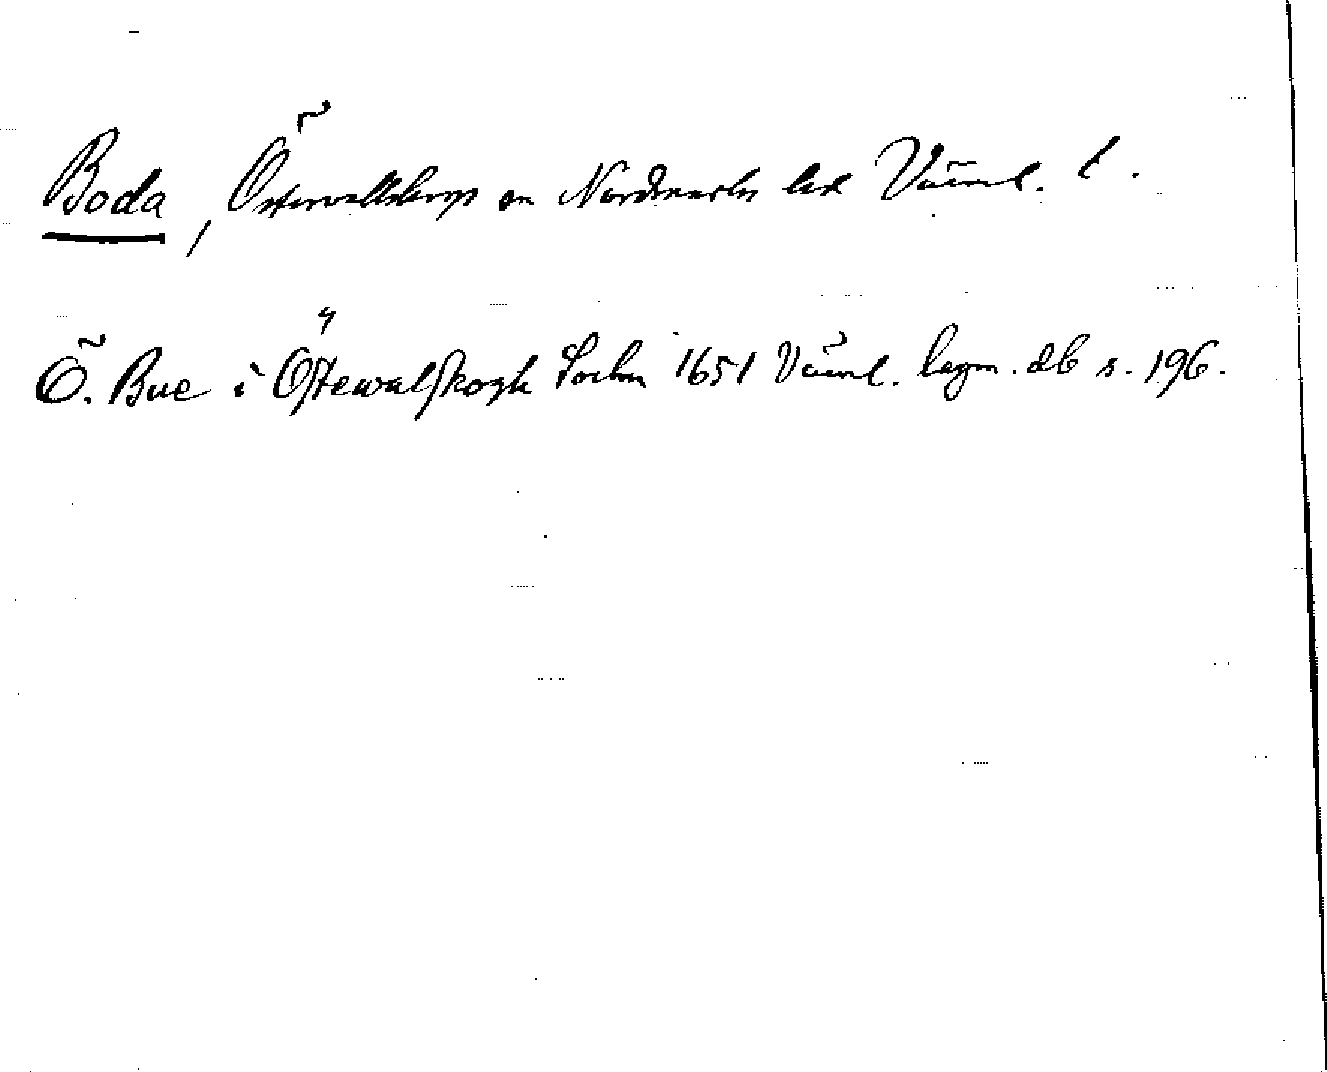 Boda, Östervallskogs sn Nordmarks hd Värml. l.
Ö. Bue i Östewalskogh Sochn 1651 Värml. lagm. db s. 196.